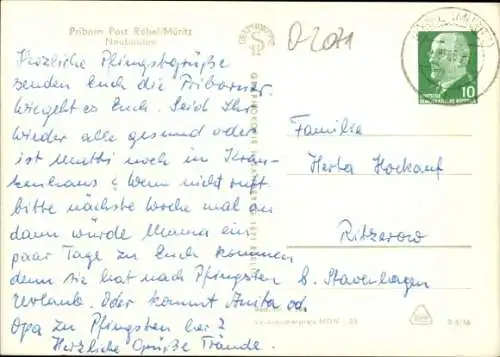 Priborn Post Röbel/Müritz
Neubauten
D 2071
Herzliche Pfingstgrüße
senden Euch die Priborner.
Wie geht es Euch. Seid Ihr
wieder alle gesund oder
ist Mutti noch im Kran-
kenhaus? Wenn nicht ruft
bitte nächste Woche mal an
dann würde Mama ein
paar Tage zu Euch kommen
denn sie hat nach Pfingsten
Urlaub. Oder kommt Anita od.
Opa zu Pfingsten her?
Herzliche Grüße
DEUTSCHE
DEMOKRATISCHE REPUBLIK
10
Familie
Herta Hockauf
Ritzerow
b. Stavenhagen